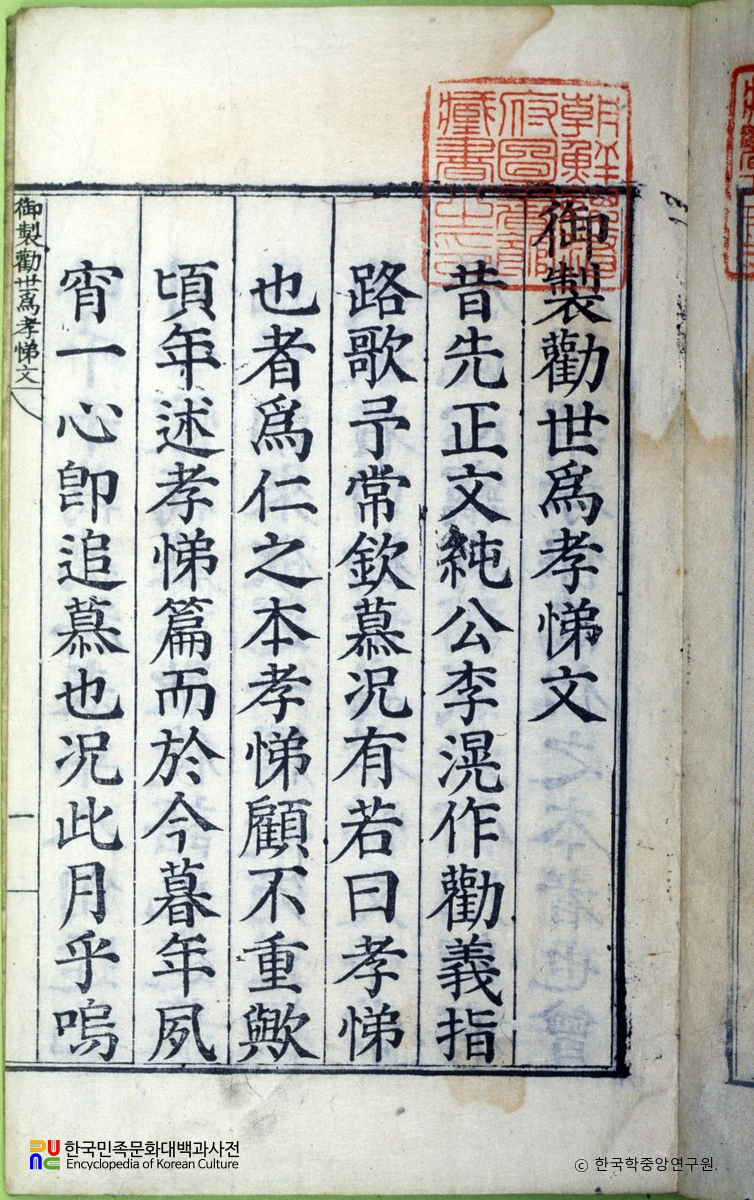 御製勸世爲孝悌文
昔先正文純公李滉作勸義指
路歌予常欽慕况有若曰孝悌
也者爲仁之本孝悌顧不重歟
頃年述孝悌篇而於今暮年夙
宵一心卽追慕也况此月乎嗚
御製勸世爲孝悌文
一
朝鮮總督
府圖書館
藏書之印
한국민족문화대백과사전
Encyclopedia of Korean Culture
ⓒ 한국학중앙연구원.